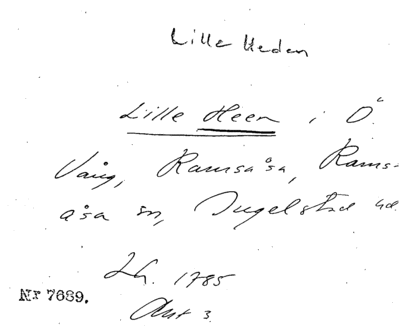 Lilla Hedan
Lille Heen i Ö.
Vång, Ramsåsa, Rams-
åsa sn, Ingelstad hd.
Lh. 1785
Akt 3.
Nr 7689.